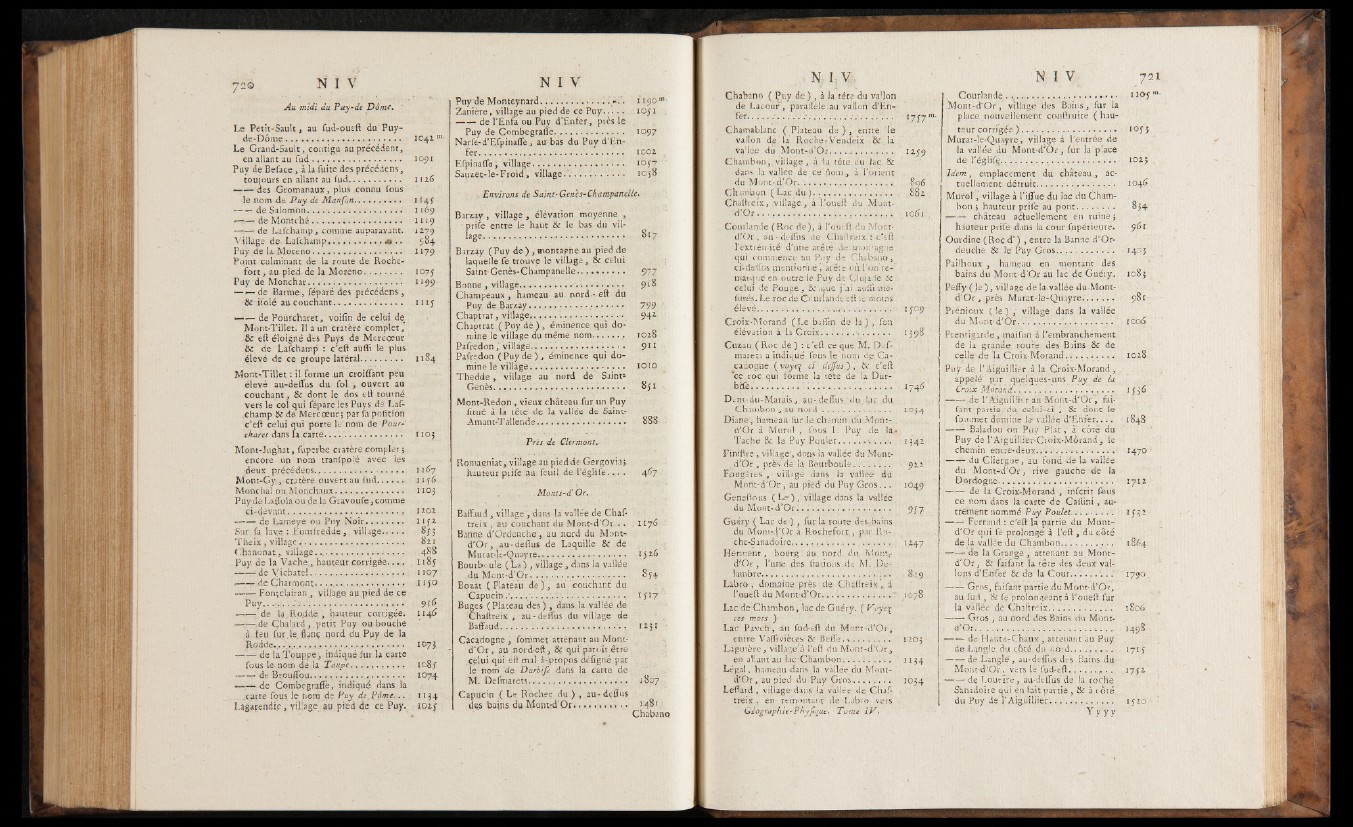 720 N I V
Au midi du Puy-de Dôme.
Le Petit-Sault, au sud-ouest du Puy-
de-Dôme............ 1042 m.
Le Grand-Sault, contigu au précédent,
en allant au sud............ 1091
Puy de Beface, à la suite des précédens,
toujours en allant au sud............ 1126
—— des Gromanaux, plus connu sous
le nom de Puy de Manson............ 1145
—— de Salomon............ 1169
—— de Montchê............ 1119
—— de Laschamp, comme auparavant. 1279
Village de Laschamp............ 984
Puy de la Moreno............ 1179
Point culminant de la route de Roche-
fort, au pied de la Moreno............ 1075
Puy de Monchar............ 1199
—— de Barme, séparé des précédens,
& isolé au couchant............ 1115
—— de Pourcharet, voisin de celui de
Mont-Tillet. Il a un cratère complet,
& est éloigné des Puys de Mercœur
& de Laschamp : c'est aussi le plus
élevé de ce groupe latéral............ 1184
Mont-Tillet : il forme un croissant peu
élevé au-dessus du sol, ouvert au
couchant, & dont le dos est tourné
vers le col qui sépare les Puys de Las-
champ & de Mercœur; par sa position
c'est celui qui porte le nom de Pour-
charet dans la carte............ 1103
Mont-Jughat, superbe cratère complet;
encore un nom transposé avec les
deux précédens............ 1167
Mont-Gy, cratère ouvert au sud...... 1156
Monchal ou Monchaux............ 1103
Puy de Lassola ou de la Gravouse, comme
ci-devant............ 1202
—— de Lameye ou Puy Noir........ 1152
Sur sa lave : Fontfredde, village..... 853
Theix, village............ 821
Chanonat, village............ 488
Puy de la Vache, hauteur corrigée.... 1185
—— de Vichatel............ 1107
—— de Charmont............ 1150
—— Fontclairan, village au pied de ce
Puy............ 956
—— de la Rodde, hauteur corrigée. 1146
—— de Chalard, petit Puy ou bouche
à feu sur le flanc nord du Puy de la
Rodde............ 1073
—— de la Touppe, indiqué sur la carte
sous le nom de la Taupe............ 1085
—— de Broussou............ 1074
—— de Combegrasse, indiqué dans la
carte sous le nom de Puy de Pâme... 1134
Lagarendie, village au pied de ce Puy. 1025
N I V
Puy de Monteynard............ 1190 m.
Zanière, village au pied de ce Puy..... 1051
—— de l'Enfa ou Puy d'Enfer, près le
Puy de Combegrasse............ 1097
Narse-d'Espinasse, au bas du Puy d'En-
fer............ 1002
Espinasse, village............ 1057
Sauzet-le-Froid, village............ 1058
Environs de Saint-Genès-Champanelle.
Barzay, village, élévation moyenne,
prise entre le haut & le bas du vil-
lage............ 817
Barzay (Puy de), montagne au pied de
laquelle se trouve le village, & celui
Saint-Genès-Champanelle............ 977
Bonne, village............ 918
Champeaux, hameau au nord-est du
Puy de Barzay............ 799
Chaptrat, village............ 942
Chaptrat (Puy de), éminence qui do-
mine le village du même nom....... 1028
Pasredon, village............ 911
Pasredon (Puy de), éminence qui do-
mine le village............ 1010
Thedde, village au nord de Saint-
Genès............ 851
Mont-Redon, vieux château sur un Puy
situé à la tête de la vallée de Saint-
Amant-Tallende............ 888
Près de Clermont.
Romaeniat, village au pied de Gergovia;
hauteur prise au seuil de l'église.... 467
Monts-d'Or.
Baffaud, village, dans la vallée de Chas-
treix, au couchant du Mont-d'Or... 1176
Banne d'Ordenche, au nord du Mont-
d'Or, au-dessus de Laquille & de
Murat-le-Quayre............ 1526
Bourboule (La), village, dans la vallée
du Mont-d'Or............ 854
Bozat (Plateau de), au couchant du
Capucin............ 1517
Buges (Plateau des), dans la vallée de
Chastreix, au-dessus du village de
Baffaud............ 1231
Cacadogne, sommet attenant au Mont-
d'Or, au nord-est, & qui paroît être
celui qui est mal à-propos désigné par
le nom de Durbise dans la carte de
M. Desmarets............ 1807
Capucin (Le Rocher du), au-dessus
des bains du Mont-d'Or............ 1481
Chabano
N I V
Chabano (Puy de), à la tête du vallon
de Lacour, parallèle au vallon d'En-
fer............ 1757 m.
Chamablanc (Plateau de), entre le
vallon de la Roche-Vendeix & la
vallée du Mont-d'Or............ 1259
Chambon, village, à la tête du lac &
dans la vallée de ce nom, à l'orient
du Mont-d'Or............ 896
Chambon (Lac du)............ 882
Chastreix, village, à l'ouest du Mont-
d'Or............ 1061
Courlande (Roc de), à l'ouest du Mont-
d'Or, au-dessus de Chastreix : c'est
l'extrémité d'une arête de montagne
qui commence au Puy de Chabano,
ci-dessus mentionné; arête où l'on re-
marque en outre le Puy de
celui de Pouge, & que j'ai aussi me-
surés. Le roc de Courlande est le moins
élevé............ 1509
Croix-Morand (Le bassin de la), son
élévation à la Croix............ 1398
Cuzau (Roc de) : c'est ce que M. Des-
marets a indiqué sous le nom de Ca-
cadogne (voyez ci-dessus), & c'est
ce roc qui forme la tête de la Dur-
bise............ 1746
Dent-du-Marais, au-dessus du lac du
Chambon, au nord............ 1034
Diane, hameau sur le chemin du Mont-
d'Or à Murol, sous le Puy de la
Tache & le Puy Poulet............ 1342
Finestre, village, dans la vallée du Mont-
d'Or, près de la Bourboule........ 922
Fougères, village dans la vallée du
Mont-d'Or, au pied du Puy Gros... 1049
Genestous (Le), village dans la vallée
du Mont-d'Or............ 957
Guéry (Lac de), sur la route des bains
du Mont-d'Or à Rochefort, par Ro-
che-Sanadoire............ 1247
Herment, bourg au nord du Mont-
d'Or, l'une des stations de M. De-
lambre............ 829
Labro, domaine près de Chastreix, à
l'ouest du Mont-d'Or............ 1078
Lac de Chambon, lac de Guéry. (Voyez
ces mots.)
Lac Paven, au sud-est du Mont-d'Or,
entre Vassivières & Besse............ 1203
Laguière, village à l'est du Mont-d'Or,
en allant au lac Chambon............ 1134
Légal, hameau dans la vallée du Mont-
d'Or, au pied du Puy Gros......... 1034
Lessard, village dans la vallée de Chas-
treix, en remontant de Labro vers
Géographie-Physique. Tome IV.
N I V 721
Courlande............ 1205 m.
Mont-d'Or, village des Bains, sur la
place nouvellement construite (hau-
teur corrigée)............ 1053
Murat-le-Quayre, village à l'entrée de
la vallée du Mont-d'Or, sur la place
de l'église............ 1023
Idem, emplacement du château, ac-
tuellement détruit............ 1046
Murol, village à l'issue du lac du Cham-
bon; hauteur prise au pont........ 834
—— château actuellement en ruine;
hauteur prise dans la cour supérieure. 961
Ourdine (Roc d'), entre la Banne d'Or-
denche & le Puy Gros............ 1403
Pailhoux, hameau en montant des
bains du Mont-d'Or au lac de Guéry. 1083
Pessy (le), village de la vallée du Mont-
d'Or, près Murat-le-Quayre........ 981
Prénioux (le), village dans la vallée
du Mont-d'Or............ 1006
Prentigarde, maison à l'embranchement
de la grande route des Bains & de
celle de la Croix-Morand............ 1028
Puy de l'Aiguillier à la Croix-Morand,
appelé par quelques-uns Puy de la
Croix Morand............ 1536
—— de l'Aiguillier au Mont-d'Or, fai-
sant partie du celui-ci, & dont le
sommet domine la vallée d'Enfer.... 1848
—— Baladou ou Puy Plat, à côté du
Puy de l'Aiguillier-Croix-Morand, le
chemin entre-deux............ 1470
—— du Cliergue, au fond de la vallée
du Mont-d'Or, rive gauche de la
Dordogne............ 1712
—— de la Croix-Morand, inscrit sous
ce nom dans la carte de Cassini, au-
trement nommé Puy Poulet............ 1532
—— Ferrand : c'est la partie du Mont-
d'Or qui se prolonge à l'est, du côté
de la vallée du Chambon............ 1864
—— de la Grange, attenant au Mont-
d'Or, & faisant la tête des deux val-
lons d'Enfer & de la Cour............ 1790
—— Gros, faisant partie du Mont-d'Or,
au sud, & se prolongeant à l'ouest sur
la vallée de Chastreix............ 1806
—— Gros, au nord des Bains du Mont-
d'Or............ 1498
—— de Hauts-Chaux, attenant au Puy
de Langle du côté du nord............ 1715
—— de Langle, au-dessus des Bains du
Mont-d'Or, vers le sud-est............ 1752
—— de Loueire, au-dessus de la roche
Sanadoire qui en fait partie, & à côté
du Puy de l'Aiguillier............ 1520
Y y y y